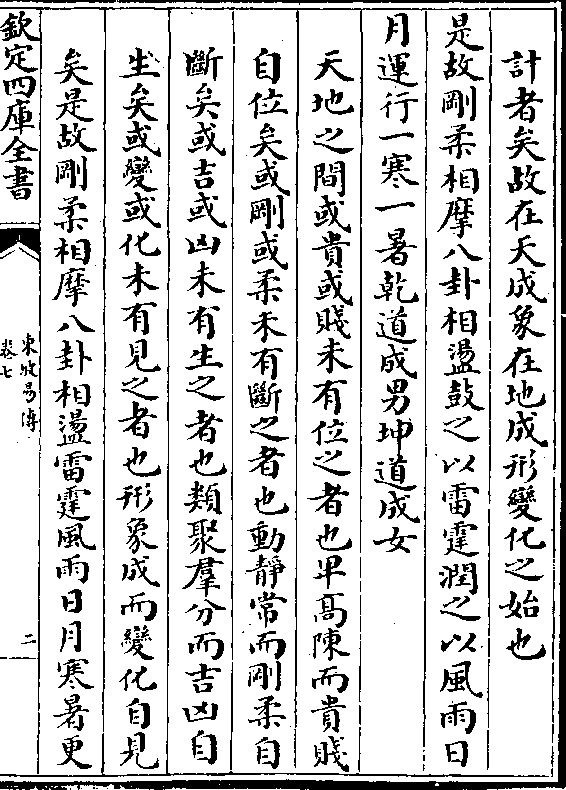 計者矣故在天成象在地成形變化之始也
是故剛柔相摩八卦相盪鼓之以雷霆潤之以風雨日
月運行一寒一暑乾道成男坤道成女
天地之間或貴或賤未有位之者也卑高陳而貴賤
自位矣或剛或柔未有斷之者也動靜常而剛柔自
斷矣或吉或凶未有生之者也類聚羣分而吉凶自
生矣或變或化未有見之者也形象成而變化自見
矣是故剛柔相摩八卦相盪雷霆風雨日月寒暑更
欽定四庫全書
東坡易傳
卷七
二